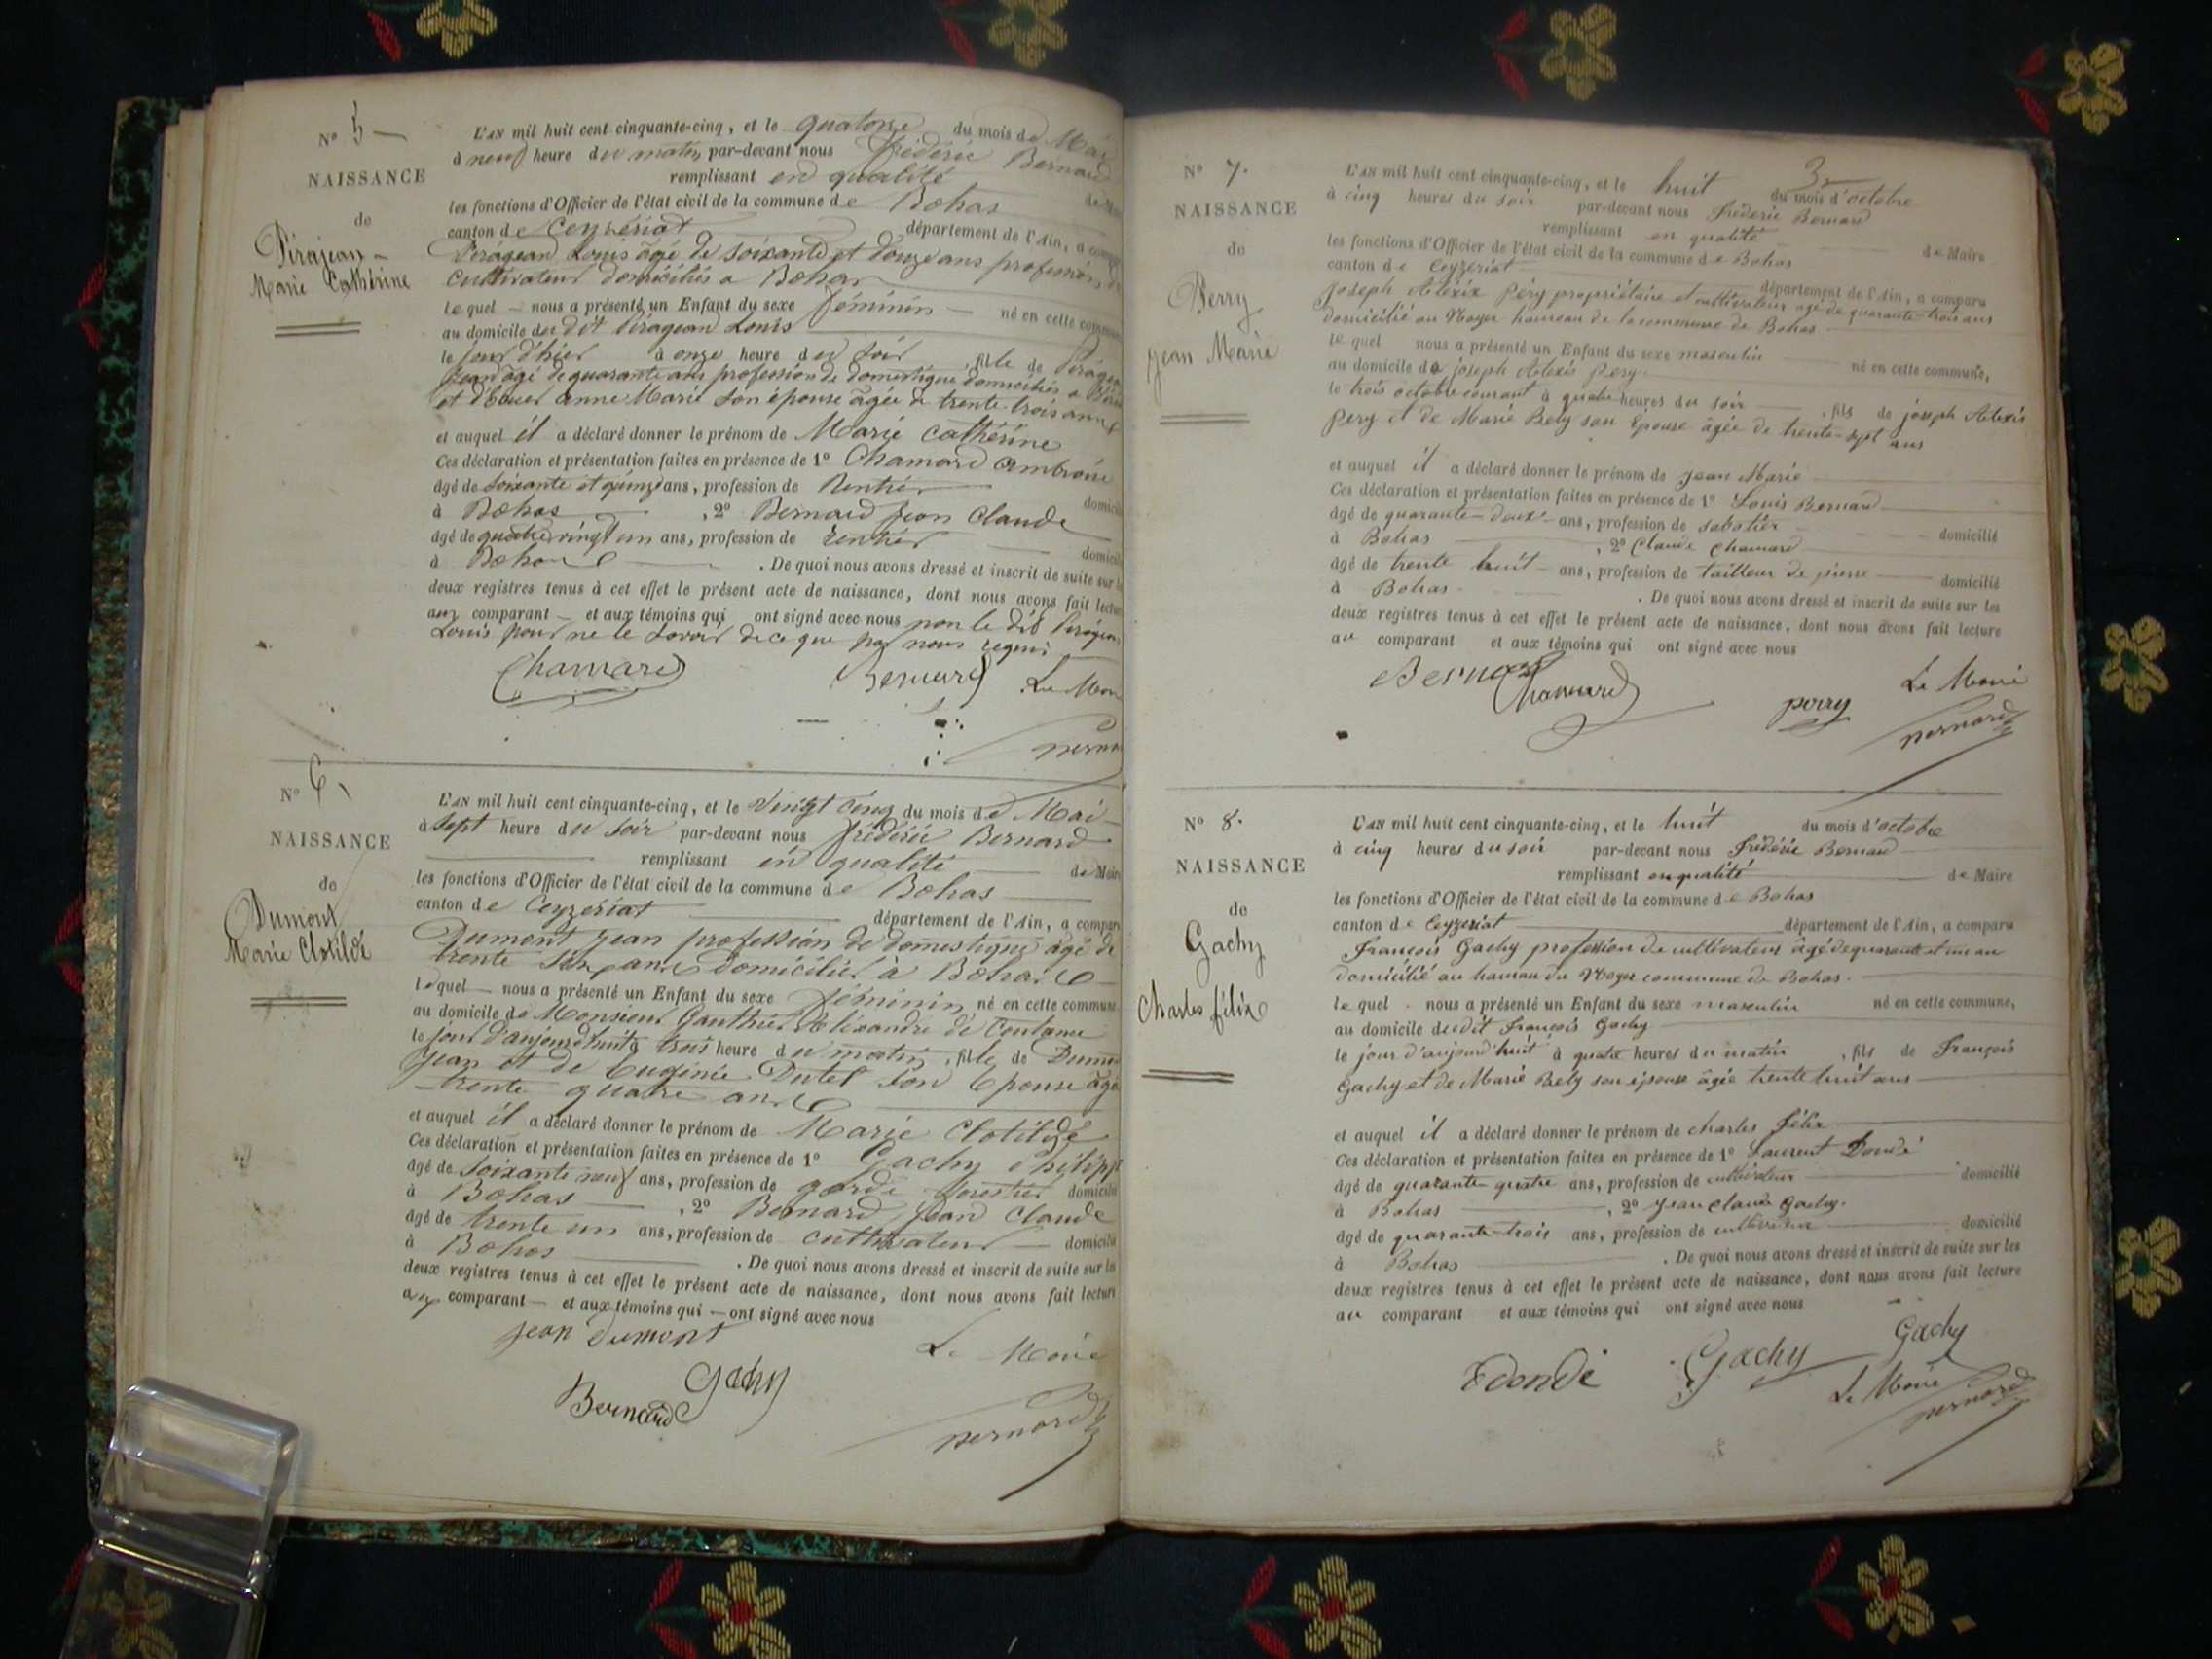 N° 5
NAISSANCE
de
Pirajean
Marie Cathérine
L'AN mil huit cent cinquante-cinq, et le quatorze du mois de Mai
à neuf heure du matin par-devant nous frédéric Bernard
remplissant en qualité de
les fonctions d'Officier de l'état civil de la commune de Bohas
canton de Ceyzériat département de l'Ain, a
Pirajean Louis âgé de soixante et douze ans profession
Cultivateur domiciliés a Bohas
lequel nous a présenté un Enfant du sexe féminin né en cette
au domicile du dit Pirajean Louis
le jour d'hier à onze heure du soir fille de
Jean âgé de quarante ans profession de domestique domiciliés a
et d' anne Marie son épouse âgée de trente trois
et auquel il a déclaré donner le prénom de Marie Cathérine
Ces déclaration et présentation faites en présence de 1° Chamard ambroise
âgé de soixante et quinze ans, profession de Rentier
à Bohas , 2° Bernard Jean Claude
âgé de quatre vingt un ans, profession de rentier
à Bohas . De quoi nous avons dressé et inscrit de suite sur
deux registres tenus à cet effet le présent acte de naissance, dont nous avons fait
aux comparant et aux témoins qui ont signé avec nous non le dit
Louis pour ne le savoir de ce que par nous requis
Chamard Bernard Le Maire
N° 6
NAISSANCE
de
Dumont
Marie Clotilde
L'AN mil huit cent cinquante-cinq, et le vingt cinq du mois de Mai
à sept heure du soir par-devant nous frédéric Bernard
remplissant en qualité de Maire
les fonctions d'Officier de l'état civil de la commune de Bohas
canton de Ceyzériat département de l'Ain, a
Dumont Jean profession de domestique âgé de
trente six ans domicilié à Bohas
lequel nous a présenté un Enfant du sexe féminin né en cette commune
au domicile de Monsieur Gauthier Alixandre de
le jour d'aujourd'huit à trois heure du matin, fille de
Jean et de Eugénie Dutel son Epouse
trente quatre ans
et auquel il a déclaré donner le prénom de Marie Clotilde
Ces déclaration et présentation faites en présence de 1° Gachy
âgé de soixante neuf ans, profession de garde forestier
à Bohas , 2° Bernard Jean Claude
âgé de trente un ans, profession de cultivateur
à Bohas . De quoi nous avons dressé et inscrit de suite sur
deux registres tenus à cet effet le présent acte de naissance, dont nous avons fait
aux comparant et aux témoins qui ont signé avec nous
jean dumont Le Maire
Gachy
Bernard bernard
3
N° 7.
NAISSANCE
de
Perry
Jean Marie
L'AN mil huit cent cinquante-cinq, et le huit du mois d'octobre
à cinq heures du soir par-devant nous frédéric Bernard
remplissant en qualité de Maire
les fonctions d'Officier de l'état civil de la commune de Bohas
canton de Ceyzeriat département de l'Ain, a comparu
joseph Alexix péry propriétaire et cultivateur, âgé de quarante-trois ans
domicilié au Noyer hameau de la commune de Bohas
lequel nous a présenté un Enfant du sexe masculin né en cette commune,
au domicile de joseph Alexis pery
le trois octobre courant à quatre heures du soir , fils de joseph Alexis
pery et de Marie Bely son épouse âgée de trente-sept ans
et auquel il a déclaré donner le prénom de Jean Marie
Ces déclaration et présentation faites en présence de 1° Louis Bernard
âgé de quarante-deux ans, profession de sabotier
à Bohas , 2° Claude Chamard domicilié
âgé de trente huit ans, profession de tailleur de pierre domicilié
à Bohas . De quoi nous avons dressé et inscrit de suite sur les
deux registres tenus à cet effet le présent acte de naissance, dont nous avons fait lecture
au comparant et aux témoins qui ont signé avec nous
Bernard Chamard perry Le Maire
bernard
N° 8.
NAISSANCE
de
Gachy
Charles félix
L'AN mil huit cent cinquante-cinq, et le huit du mois d'octobre
à cinq heures du soir par-devant nous Frédéric Bernard
remplissant en qualité de Maire
les fonctions d'Officier de l'état civil de la commune de Bohas
canton de Ceyzeriat département de l'Ain, a comparu
François Gachy profession de cultivateur âgé de quarante et un an
domicilié au hameau du Noyer commune de Bohas.
lequel nous a présenté un Enfant du sexe masculin né en cette commune,
au domicile du dit François Gachy
le jour d'aujourd'huit à quatre heures du matin , fils de François
Gachy et de Marie Bely son épouse âgée trente huit ans
et auquel il a déclaré donner le prénom de charles félix
Ces déclaration et présentation faites en présence de 1° Laurent
âgé de quarante-quatre ans, profession de cultivateur domicilié
à Bohas , 2° Jean Claude Gachy.
âgé de quarante-trois ans, profession de cultivateur domicilié
à Bohas . De quoi nous avons dressé et inscrit de suite sur les
deux registres tenus à cet effet le présent acte de naissance, dont nous avons fait lecture
au comparant et aux témoins qui ont signé avec nous
Gachy Gachy
Le Maire
bernard